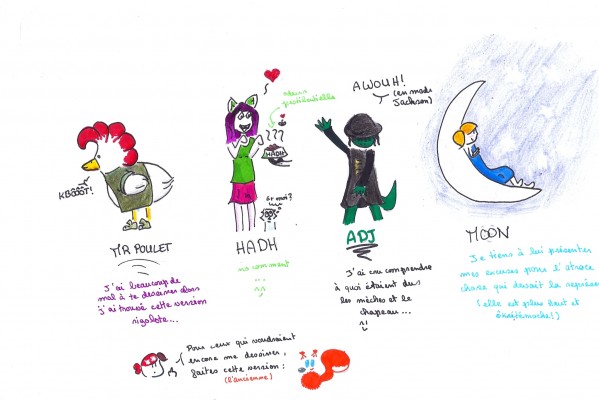 odeur
pestilentielle
???
HADH
et moi?
AWOUH!
(en mode
Jackson)
KÔÔÔT!
MR POULET
HADH
ADJ
MOON
J'ai beaucoup de
mal à te dessiner alors
j'ai trouvé cette version
rigolote...
no comment
...
^^
J'ai cru comprendre
à quoi étaient dus
les mèches et le
chapeau...
^^
Je tiens à lui présenter
mes excuses pour l'atroce
chose qui devait la représe
(elle est plus haut et
Pour ceux qui voudraient
encore me dessiner,
faites cette version:
(l'ancienne)